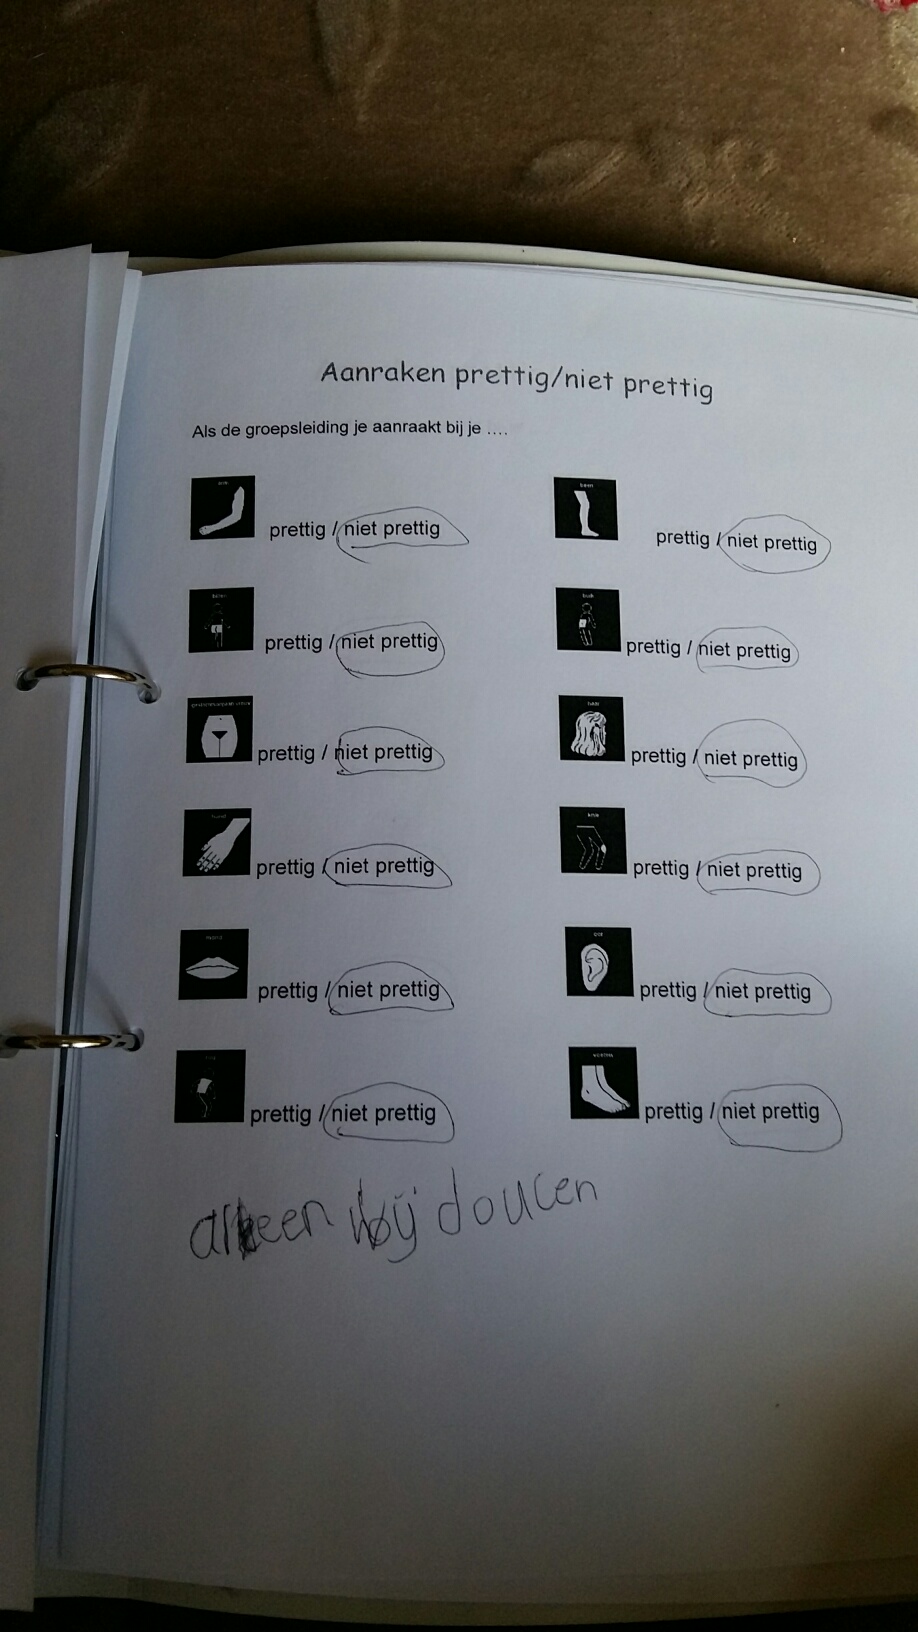 Aanraken prettig/niet prettig
Als de groepsleiding je aanraakt bij je ....
arm
been
prettig / niet prettig
prettig / niet prettig
billen
buik
prettig / niet prettig
prettig / niet prettig
haar
prettig / niet prettig
prettig / niet prettig
hand
knie
prettig / niet prettig
prettig / niet prettig
mond
oor
prettig / niet prettig
prettig / niet prettig
voeten
prettig / niet prettig
prettig / niet prettig
alleen bij doucen